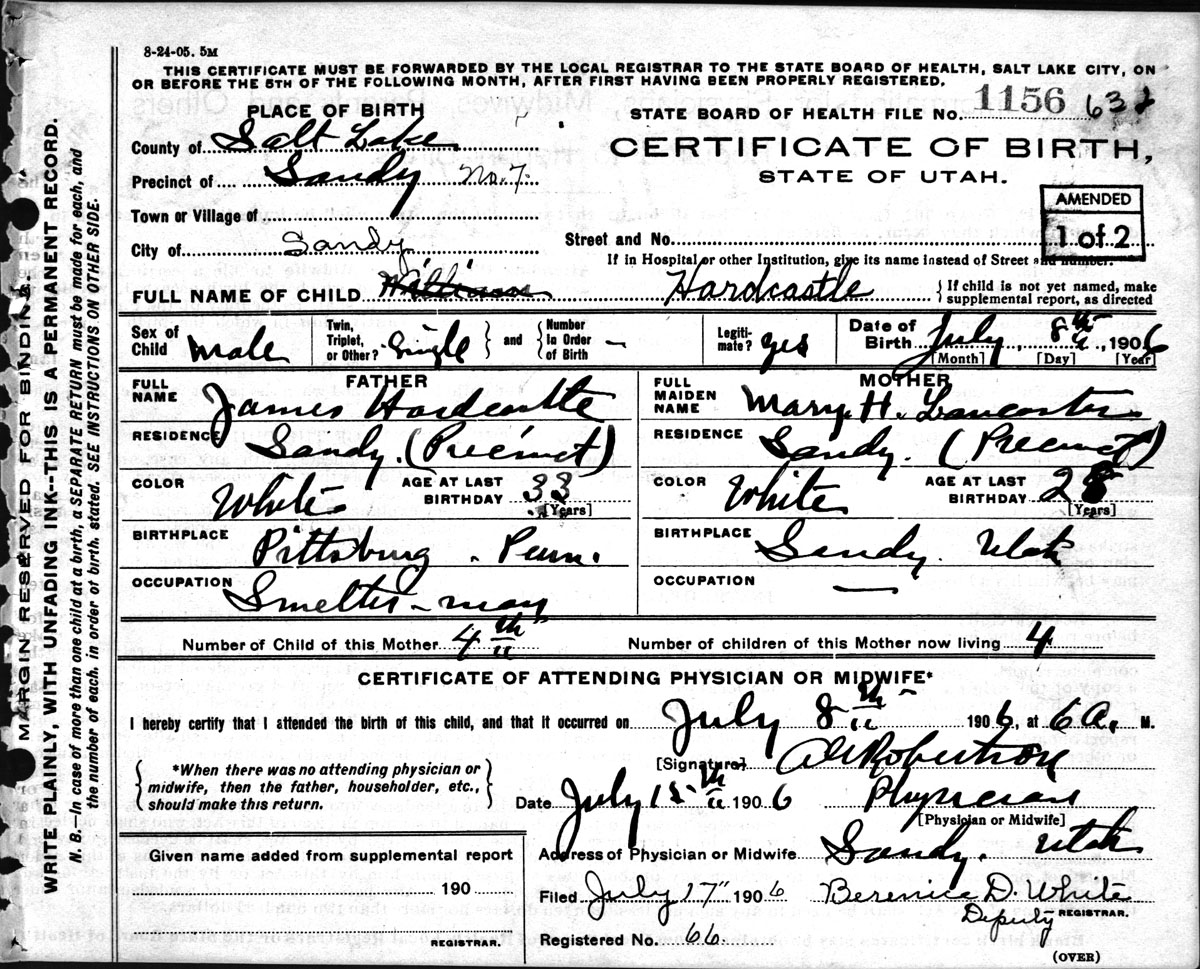 8-24-05. 5M
THIS CERTIFICATE MUST BE FORWARDED BY THE LOCAL REGISTRAR TO THE STATE BOARD OF HEALTH, SALT LAKE CITY, ON
OR BEFORE THE 5TH OF THE FOLLOWING MONTH, AFTER FIRST HAVING BEEN PROPERLY REGISTERED.
PLACE OF BIRTH
STATE BOARD OF HEALTH FILE NO. 1156 632
County of Salt Lake
CERTIFICATE OF BIRTH,
Precinct of Sandy No. 7.
STATE OF UTAH.
AMENDED
1 of 2
Town or Village of
City of Sandy
Street and No.
If in Hospital or other Institution, give its name instead of Street and number.
FULL NAME OF CHILD William Hardcastle
{ If child is not yet named, make
supplemental report, as directed
Sex of Child male
Twin, Triplet, or Other? Single } and { Number In Order of Birth –
Legitimate? yes
Date of Birth July 8th, 1906
[Month] [Day] [Year]
FATHER
FULL NAME James Hardcastle
RESIDENCE Sandy. (Precinct)
COLOR White
AGE AT LAST BIRTHDAY 33
[Years]
BIRTHPLACE Pittsburg. Penn.
OCCUPATION Smelter-man
MOTHER
FULL MAIDEN NAME Mary. H. Lancaster
RESIDENCE Sandy. (Precinct)
COLOR White
AGE AT LAST BIRTHDAY 28
[Years]
BIRTHPLACE Sandy. Utah
OCCUPATION —
Number of Child of this Mother 4th
Number of children of this Mother now living 4
CERTIFICATE OF ATTENDING PHYSICIAN OR MIDWIFE*
I hereby certify that I attended the birth of this child, and that it occurred on July 8th 1906, at 6 A. M.
{ *When there was no attending physician or
midwife, then the father, householder, etc.,
should make this return. }
[Signature] Robertson
Date July 15th 1906 Physician
[Physician or Midwife]
Address of Physician or Midwife Sandy. Utah
Given name added from supplemental report
190
REGISTRAR.
Filed July 17" 1906 Berenice D. White
Deputy REGISTRAR.
Registered No. 66.
(OVER)
MARGIN RESERVED FOR BINDING.
WRITE PLAINLY, WITH UNFADING INK--THIS IS A PERMANENT RECORD.
N. B.—In case of more than one child at a birth, a SEPARATE RETURN must be made for each, and
the number of each, in order of birth, stated. SEE INSTRUCTIONS ON OTHER SIDE.